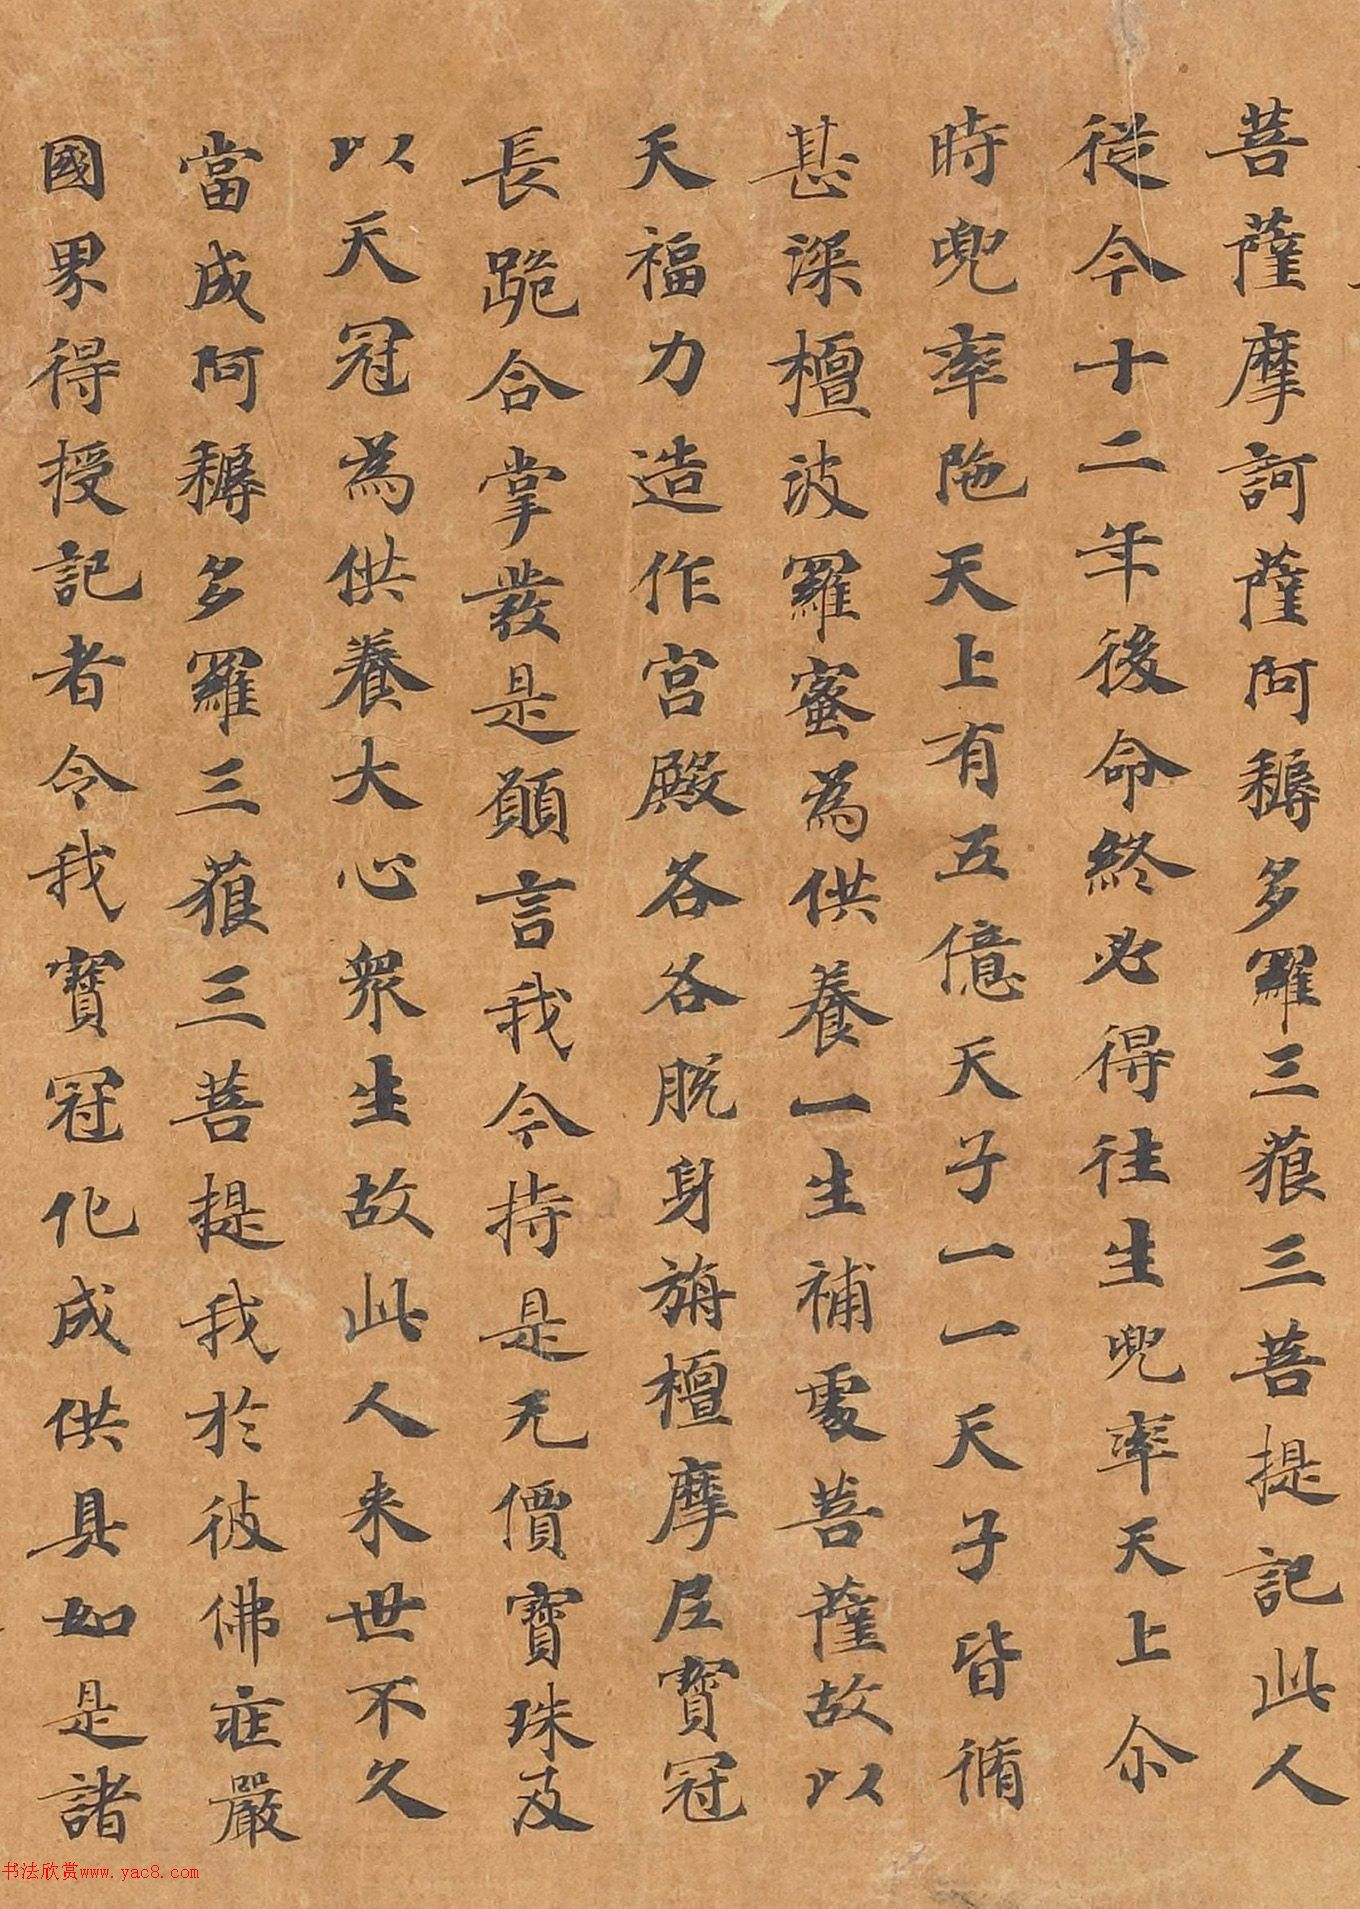 菩薩摩訶薩阿耨多羅三藐三菩提記此人
從今十二年後命終必得往生兜率天上尒
時兜率陁天上有五億天子一一天子皆脩
甚深檀波羅蜜為供養一生補處菩薩故以
天福力造作宮殿各各脫身旃檀摩尼寶冠
長跪合掌發是願言我今持是无價寶珠及
以天冠為供養大心衆生故此人来世不久
當成阿耨多羅三藐三菩提我於彼佛莊嚴
國界得授記者令我寶冠化成供具如是諸
书法欣赏www.yac8.com